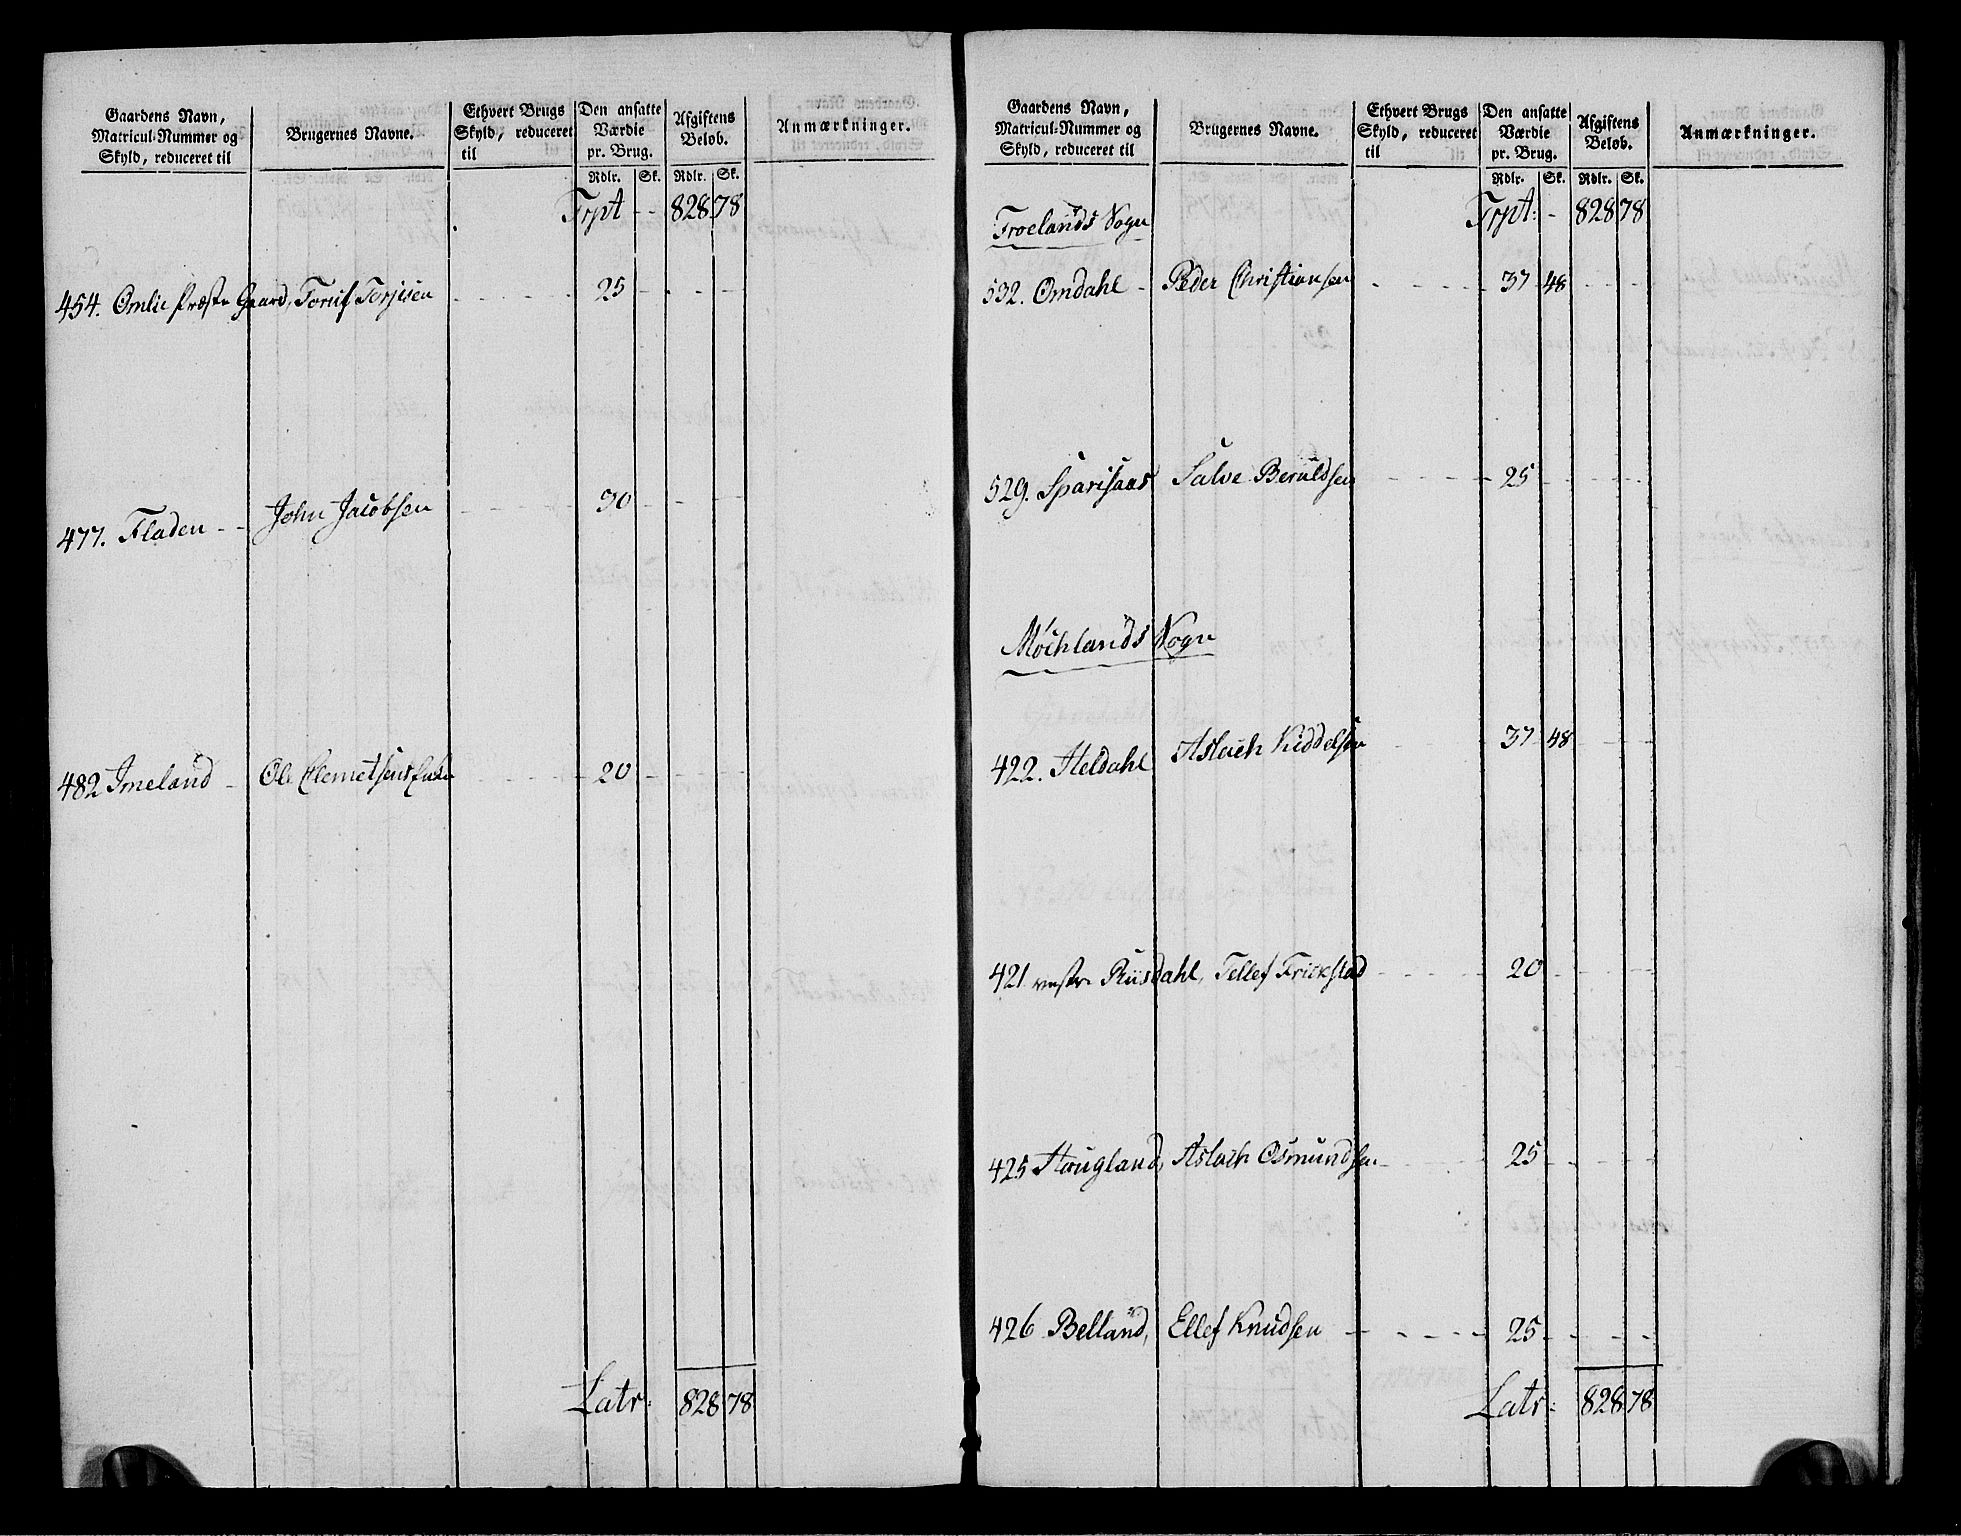 Gaardens Navn,
Matricul-Nummer og
Skyld, reduceret til
Brugernes Navne.
Ethvert Brugs
Skyld, reduceret
til
Den ansatte
Værdie
pr. Brug.
Afgiftens
Beløb.
Anmærkninger.
Rdlr. Sk. Rdlr. Sk.
Trpt - - 828 78
454. Omlie Præste Gaard, Torjisen 25
477. Fladen - - John Jacobsen 30
482 Imeland - Ole Clemetsens 20
Latr: 828 78
Gaardens Navn,
Matricul-Nummer og
Skyld, reduceret til
Brugernes Navne.
Ethvert Brugs
Skyld, reduceret
til
Den ansatte
Værdie
pr. Brug.
Afgiftens
Beløb.
Anmærkninger.
Rdlr. Sk. Rdlr. Sk.
Trpt: - 828 78
Froelands Sogn
532. Omdahl - Peder Christiansen 37 48
529. Sparisaas Salve Beruldsen 25
Møchlands Sogn
422. Heldahl Aslach Kiddelsen 37 48
421 vestre Riisdahl, Tellef Frickstad 20
425 Hougland, Aslach Osmundsen 25
426 Belland, Ellef Knudsen 25
Latr: 828 78